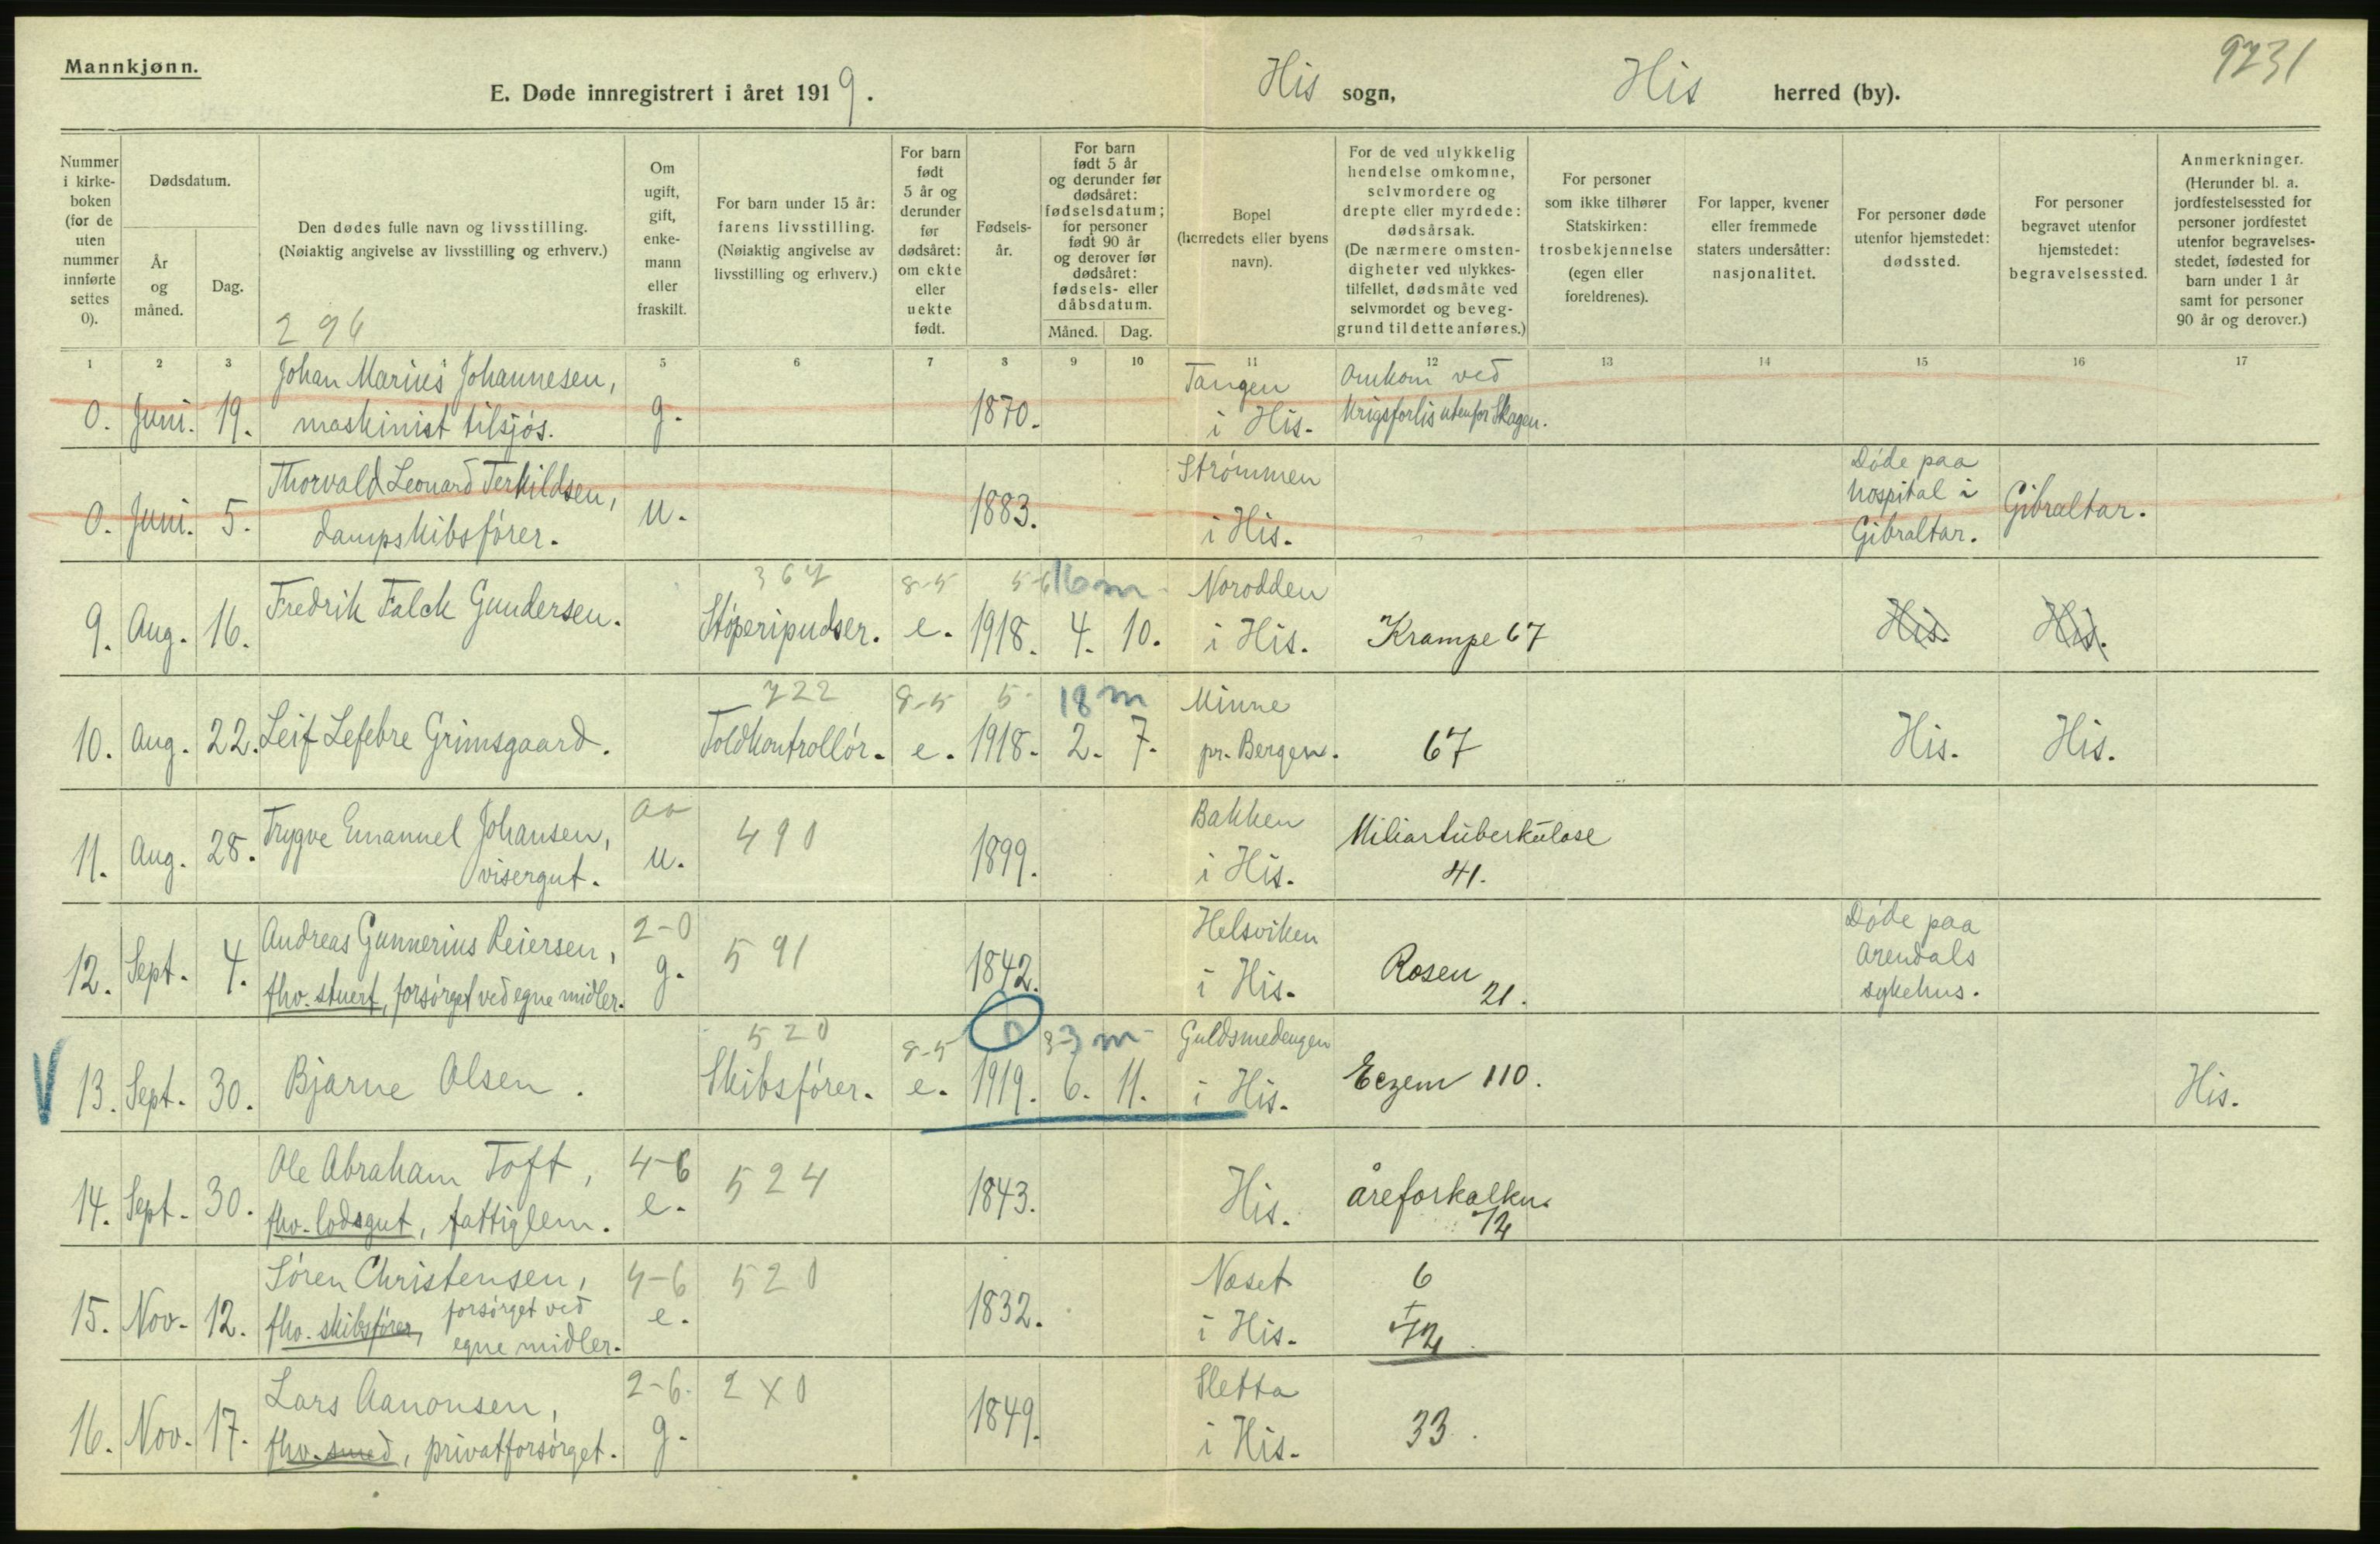 Mannkjønn.
9231
E. Døde innregistrert i året 1919. His sogn, His herred (by).
Nummer i kirke- boken (for de uten nummer innførte settes 0).
Dødsdatum.
År og måned.
Dag.
Den dødes fulle navn og livsstilling.
(Nøiaktig angivelse av livsstilling og erhverv.)
296
Om ugift, gift, enke- mann eller fraskilt.
For barn under 15 år: farens livsstilling. (Nøiaktig angivelse av livsstilling og erhverv.)
For barn født 5 år og derunder før dødsåret: om ekte eller uekte født.
Fødsels- år.
For barn født 5 år og derunder før dødsåret: fødselsdatum; for personer født 90 år og derover før dødsåret: fødsels- eller dåbsdatum.
Måned. Dag.
Bopel (herredets eller byens navn).
For de ved ulykkelig hendelse omkomne, selvmordere og drepte eller myrdede: dødsårsak. (De nærmere omsten- digheter ved ulykkes- tilfellet, dødsmåte ved selvmordet og beveg- grund til dette anføres.)
For personer som ikke tilhører Statskirken: trosbekjennelse (egen eller foreldrenes).
For lapper, kvener eller fremmede staters undersåtter: nasjonalitet.
For personer døde utenfor hjemstedet: dødssted.
For personer begravet utenfor hjemstedet: begravelsessted.
Anmerkninger. (Herunder bl. a. jordfestelsessted for personer jordfestet utenfor begravelses- stedet, fødested for barn under 1 år samt for personer 90 år og derover.)
1 2 3 5 6 7 8 9 10 11 12 13 14 15 16 17
Johan Marius Johannesen, Tangen Omkom ved
0. Juni. 19. maskinist tilsjøs. g. 1870. i His. Krigsforlis utenfor Skagen.
Thorvald Leonard Terkildsen, Strømmen Døde paa hospital i
0. Juni. 5. dampskibsfører. u. 1883. i His. Gibraltar. Gibraltar.
367 8-5 5-6 16 m Norodden
9. Aug. 16. Fredrik Falck Gundersen. Støperipudser. e. 1918. 4. 10. i His. Krampe 67 His. His.
722 8-5 5- 18 m Minne
10. Aug. 22. Leif Lefebre Grimsgaard. Toldkontrollør. e. 1918. 2. 7. pr. Bergen. 67 His. His.
Trygve Emanuel Johansen, 490 Bakken Miliartuberkulose
11. Aug. 28. visergut. u. 1899. i His. 41.
Andreas Gunnerius Reiersen, 2-0 591 Helsviken Rosen Døde paa Arendals
12. Sept. 4. fhv. stuert, forsørget ved egne midler. g. 1842. i His. 21. sykehus.
520 8-5 0 3-3 m Guldsmedengen
V 13. Sept. 30. Bjarne Olsen. Skibsfører. e. 1919. 6. 11. i His. Eczem 110. His.
Ole Abraham Toft, 4-6 524
14. Sept. 30. fhv. lodsgut, fattiglem. e. 1843. His. åreforkalkn. 72
Søren Christensen, 4-6 520 Næset 6
15. Nov. 12. fhv. skibsfører, forsørget ved egne midler. e. 1832. i His. 72
Lars Aanonsen, 2-6. 2X0 Sletta
16. Nov. 17. fhv. smed, privatforsørget. g. 1849. i His. 33.